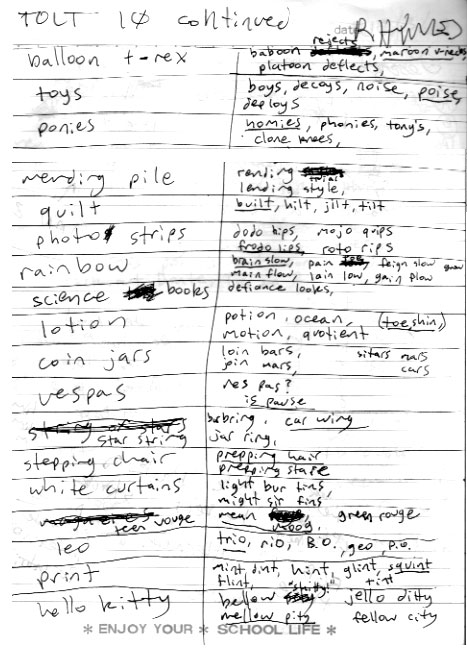 TOLT 10 continued
date RHYMES
balloon t-rex baboon rejects, maroon v-necks
platoon deflects,
toys boys, decoys, noise, poise,
deploys
ponies homies, phonies, tony's,
clone knees,
mending pile rending trial
lending style,
quilt built, hilt, jilt, tilt
photo strips dodo hips, mojo quips
frodo lips, roto rips
rainbow brain slow, pain feign slow
main flow, lain low, gain flow
science books defiance looks,
lotion potion, ocean, (toe shin,)
motion, quotient
coin jars loin bars, sitars mars
join mars, cars
vespas nes pas?
is pause
star string bring, car wing
jar ring,
stepping chair prepping hair
prepping stare
white curtains light bur tins,
might sir fins
teen vouge mean green rouge
leo trio, rio, B.O., geo, P.O.
print mint, dint, hint, glint, squint
flint, tint
hello kitty bellow "shitty" jello ditty
mellow pity fellow city
* ENJOY YOUR * SCHOOL LIFE *